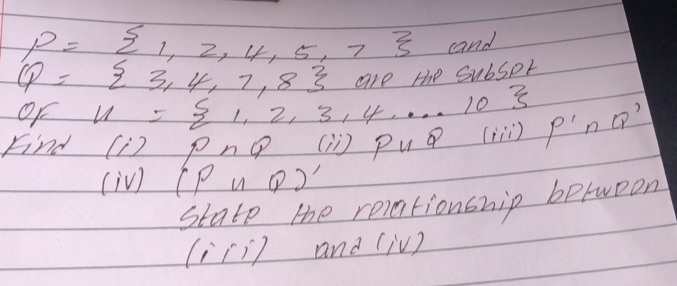 P = { 1, 2, 4, 5, 7 } and
Q = { 3, 4, 7, 8 } are the subset
OF u = { 1, 2, 3, 4 .... 10 }
Find (i) P n Q (ii) P u Q (iii) P' n Q'
(iv) (P u Q)'
State the relationship between
(iii) and (iv)